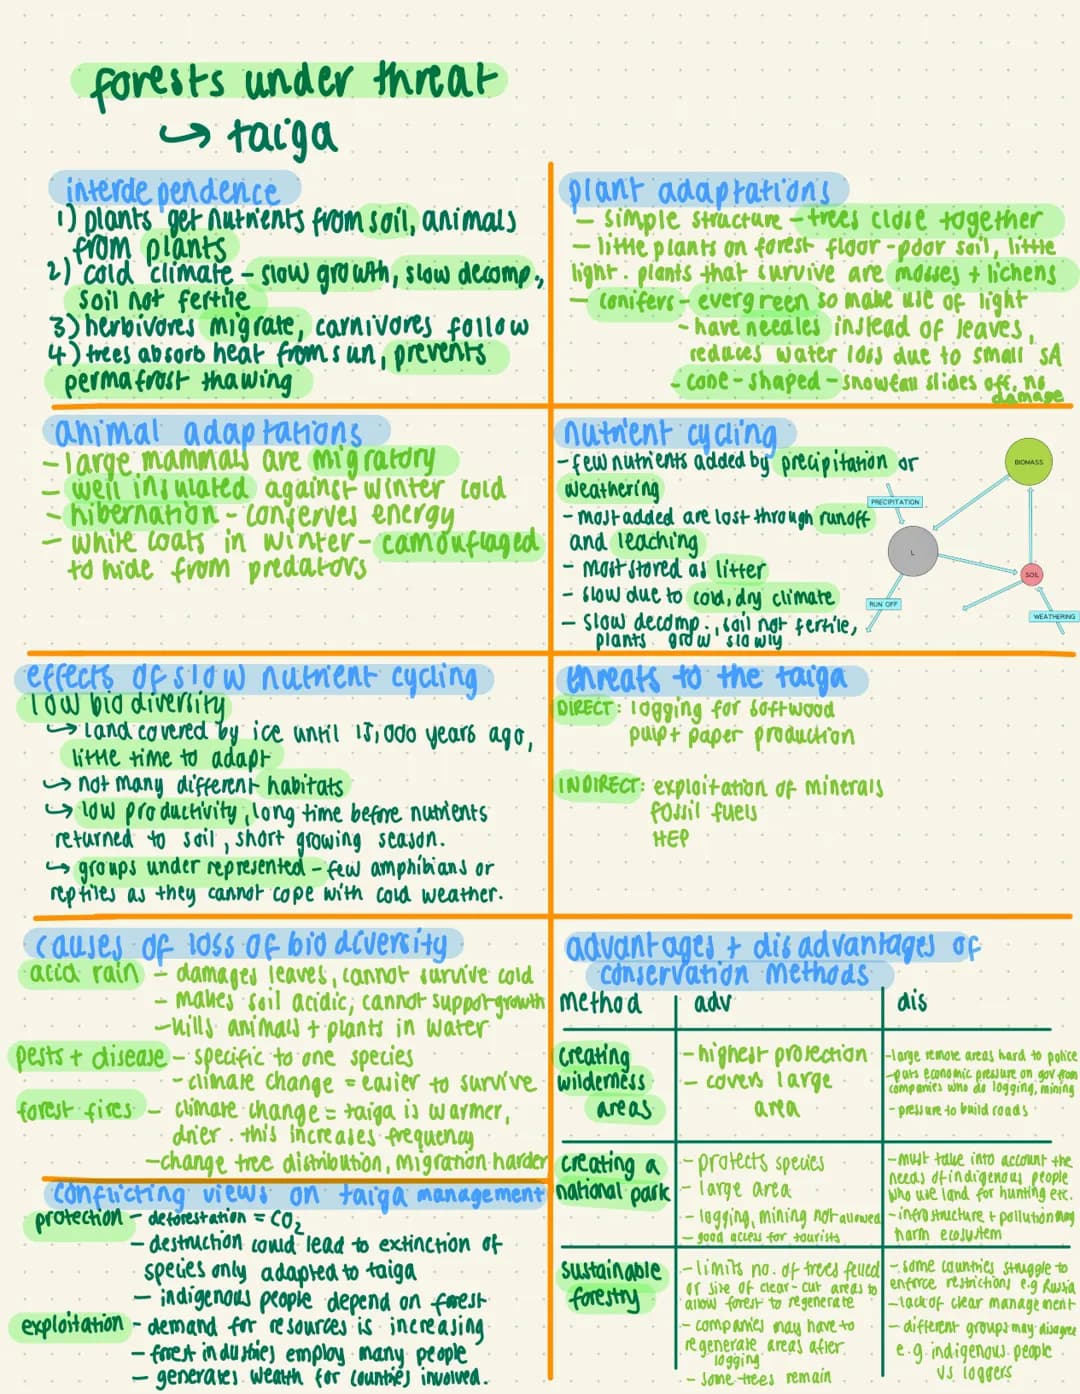 forests under threat
↳ taiga
interdependence
1) plants get nutrients from soil, animals
from plants
2) cold climate - slow growth, slow decomp.,
soil not fertile
3) herbivores migrate, carnivores follow
4) trees absorb heat from sun, prevents
permafrost thawing
plant adaptations
- simple structure - trees close together
- little plants on forest floor - poor soil, little
light. plants that survive are mosses + lichens
- conifers - evergreen so make use of light
- have needles instead of leaves,
reduces water loss due to small SA
- cone-shaped - snowfall slides off, no
damage
animal adaptations
- large mammals are migratory
- well insulated against winter cold
- hibernation - conserves energy
- white coats in winter - camouflaged
to hide from predators
nutrient cycling
- few nutrients added by precipitation or
weathering
- most added are lost through runoff
and leaching
- most stored as litter
- slow due to cold, dry climate
- slow decomp., soil not fertile,
plants grow slowly
BIOMASS
PRECIPITATION
L
SOIL
RUN OFF
WEATHERING
effects of slow nutrient cycling
low biodiversity
↳ land covered by ice until 15,000 years ago,
little time to adapt
↳ not many different habitats
↳ low productivity, long time before nutrients
returned to soil, short growing season.
↳ groups under represented - few amphibians or
reptiles as they cannot cope with cold weather.
threats to the taiga
DIRECT: logging for softwood
pulp + paper production
INDIRECT: exploitation of minerals
fossil fuels
HEP
causes of loss of biodiversity
acid rain - damages leaves, cannot survive cold
- makes soil acidic, cannot support growth
- kills animals + plants in water
pests + disease - specific to one species
- climate change = easier to survive
forest fires - climate change = taiga is warmer,
drier. this increases frequency
- change tree distribution, migration harder
conflicting views on taiga management
protection - deforestation = CO2
- destruction could lead to extinction of
species only adapted to taiga
- indigenous people depend on forest
exploitation - demand for resources is increasing
- forest industries employ many people
- generates wealth for counties involved.
advantages + disadvantages of
conservation methods
method adv dis
creating
wilderness
areas
- highest protection
- covers large
area
- large remote areas hard to police
- puts economic pressure on gov from
companies who do logging, mining
- pressure to build roads
creating a
national park
- protects species
- large area
- logging, mining not allowed
- good access for tourists
- must take into account the
needs of indigenous people
who use land for hunting etc.
- infrostructure + pollution may
harm ecosystem
sustainable
forestry
- limits no. of trees felled
or size of clear-cut areas to
allow forest to regenerate
- companies may have to
regenerate areas after
logging
- some trees remain
- some countries struggle to
enforce restrictions e.g Russia
- lack of clear management
- different groups may disagree
e.g indigenous people
vs loggers